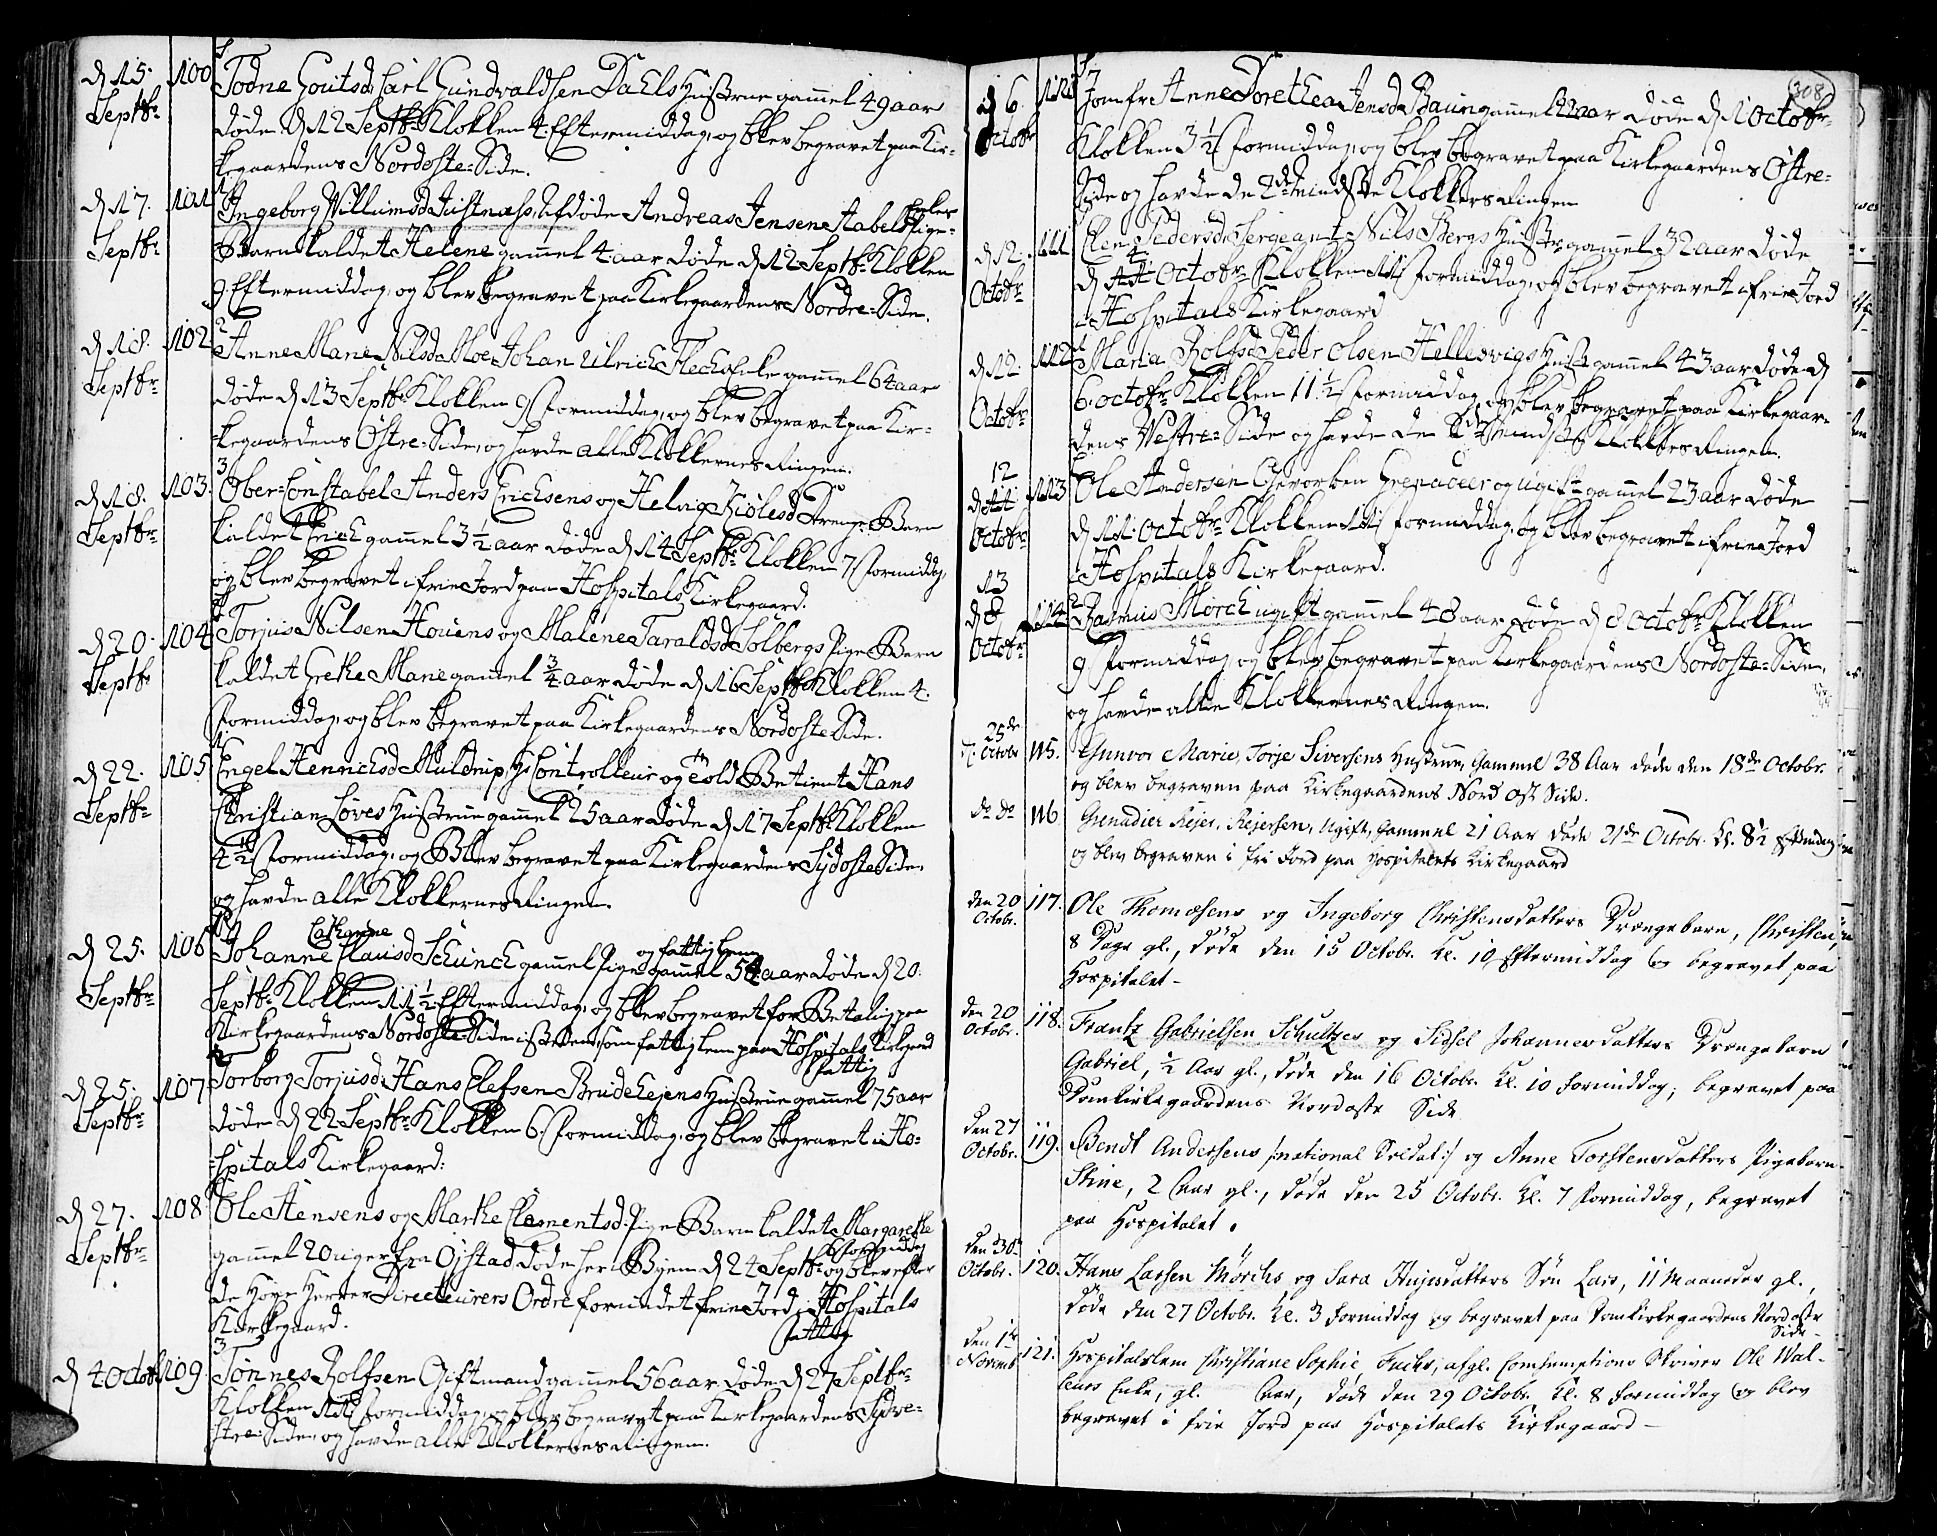 d 15. 100 Todne Goutsd Carl Gundvaldsen Dahls Hustrue gamel 49 aar
Septbr døde d 12 Septbr Klokken 4 Eftermiddag, og blev begravet paa Kir-
kegaardens Nordoste-Side.
d 17. 101 Ingeborg Willumsd Afdøde Andreas Jensen Stabels Pige-
Septbr Barn kaldet Helene gamel 4 aar døde d 12 Septbr Klokken
9 Eftermiddag, og blev begravet paa Kirkegaardens Nordre-Side.
d 18. 102 Anne Marie Nilsd Moe Johan Ulrich Flechs Enke gamel 64 aar
Septbr døde d 13 Septbr Klokken 9 Formiddag, og blev begravet paa Kir-
kegaardens Østre-Side, og havde alle Klokkernes Ringen.
d 18. 103. Ober-Constabel Anders Erichsens og Helvig Drenge-Barn
Septbr kaldet Erich gamel 3 1/2 aar døde d 14 Septbr Klokken 7 Formiddag,
og blev begravet i frie Jord paa Hospitals Kirkegaard.
d 20. 104 Torjus Nilsen Houens og Malene Taraldsd Solbergs Pige-Barn
Septbr kaldet Grethe Marie gamel 3/4 aar døde d 16 Septbr Klokken 4.
Formiddag, og blev begravet paa Kirkegaardens Nordoste Side.
d 22. 105 Engel Henrichsd Muldrup, Controlleur og Told-Betient Hans
Septbr Christian Løves Hustrue gamel 25 aar døde d 17 Septbr Klokken
4 1/2 Formiddag, og Blev begravet paa Kirkegaardens Sydoste Side,
og havde alle Klokkernes Ringen.
d 25. 106 Johanne Cathanne Clausd Schunch gamel Pige og fattig Lem gamel 54 aar døde d 20.
Septbr Septbr Klokken 11 1/2 Eftermiddag, og blev begravet for Betaling paa
Kirkegaardens Nordoste Side i steden som fattiglem paa Hospitals Kirkegaard
fattig
d 25. 107 Torborg Torjusd Hans Elefsen Brudehejens Hustrue gamel 75 aar
Septbr døde d 22 Septbr Klokken 6 Formiddag, og blev begravet i Ho-
spitals Kirkegaard.
d 27. 108 Ole Stensens og Marthe Clamentsd Pige-Barn kaldet Margarethe
Septbr gamel 20 uger fra Ojstad døde her i Byen d 24 Septbr Formiddag og blev efter
de Høye Herrer Directeurers Ordre forundet frie Jord i Hospitals
Kirkegaard.
fattig
d 4 Octobr 109. Tønnes Rolfsen Giftmand gamel 56 aar døde d 27 Septbr
Klokken 11 Formiddag, og blev begravet paa Kirkegaardens Sydve-
stre-Side, og havde alle Klokkernes Ringen.
308
d 6. Jomfr Anne Dorethea Jensd Baun gamel 22 aar døde d 1 Octobr
Octobr Klokken 3 1/2 Formiddag, og blev begravet paa Kirkegaardens Østre-
Side og havde de 2de mindste Klokkers Ringen
d 12. 111 Elen Pedersd Sergeant Nils Bergs Hustr gamel 32 aar døde
Octobr d 4 Octobr Klokken 11 Formiddag, og blev begravet i frie Jord
i Hospitals Kirkegaard
d 12. 112 Maria Rolfsd Peder Olsen Hellesvigs Hustr gamel 43 aar døde d
Octobr 6 octobr Klokken 11 1/2 Formiddag, og blev begravet paa Kirkegaar-
dens Vestre-Side og havde de 2de mindste Klokkes Ringen.
12
Octobr 113 Ole Andersen Gevorben Grenadeer og ugift gamel 23 aar døde
d 11 Octobr Klokken 11 Formiddag, og blev begravet i frie Jord
i Hospitals Kirkegaard.
13
d 8 114 Rasmus Mørch ugift gamel 48 aar døde d 8 Octobr Klokken
Octobr 9 Formiddag og blev begravet paa Kirkegaardens Nordoste-Side,
og havde alle Klokkernes Ringen.
25de
Octobr 115. Gunvor Marie, Torje Siversens Hustrue, Gammel 38 Aar døde den 18de Octobr.
og blev begraven paa Kirkegaardens Nord Ost Side.
do do 116 Grenadier Rejer, Rejersen, Ugift, Gammel 21 Aar døde 21de Octobr. Kl. 8 1/2 Eftmdag
og blev begraven i fri Jord paa Hospitalets Kirkegaard
den 20 117. Ole Thomesens og Ingeborg Christensdatters Drengebarn, Christen
Octobr. 8 Dage gl., døde den 15 Octobr. Kl. 10 Eftermiddag og begravet paa
Hospitalet -
den 20 118. Frantz Gabrielsen Schultzes og Sidsel Johannesdatters Drengebarn
Octobr. Gabriel, 1/2 Aar gl., døde den 16 Octobr. Kl. 10 Formiddag; begravet paa
Domkirkegaardens Nordoste Side
den 27 119. Bendt Andersens /:national Soldat:/ og Anne Torstensdatters Pigebarn
Octobr. Stine, 2 Aar gl., døde den 25 Octobr. Kl. 7 Formiddag, begravet
paa Hospitalet.
den 30te
Octobr. 120. Hans Larsen Mörchs og Sara datters Søn Lars, 11 Maaneder gl.,
døde den 27 Octobr. Kl. 3 Formiddag og begravet paa Domkirkegaardens Nordoste
Side
den 1te
Novemb. 121. Hospitalslem Christiane Sophie Fuchs, afgl. Consumptions Skriver Ole Wal-
Enke, gl. Aar, døde den 29 Octobr. Kl. 8 Formiddag og blev
begravet i frie Jord paa Hospitalets Kirkegaard -